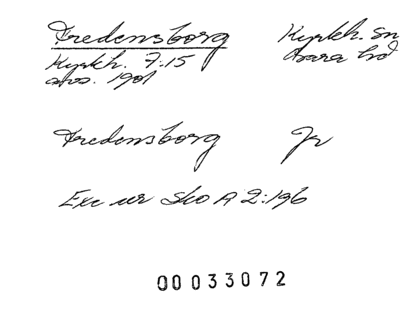 Fredensborg Kyrkh. sn
Kyrkh. 7:15 Asara hd
avs. 1901
Fredensborg Jr
Exc ur Sko A 2:196
00033072